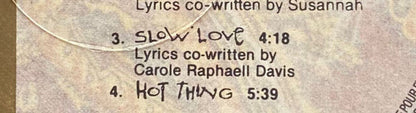 Lyrics co-written by Susannah
3. SLOW LOVE 4:18
Lyrics co-written by
Carole Raphaell Davis
4. HOT THING 5:39
POUR